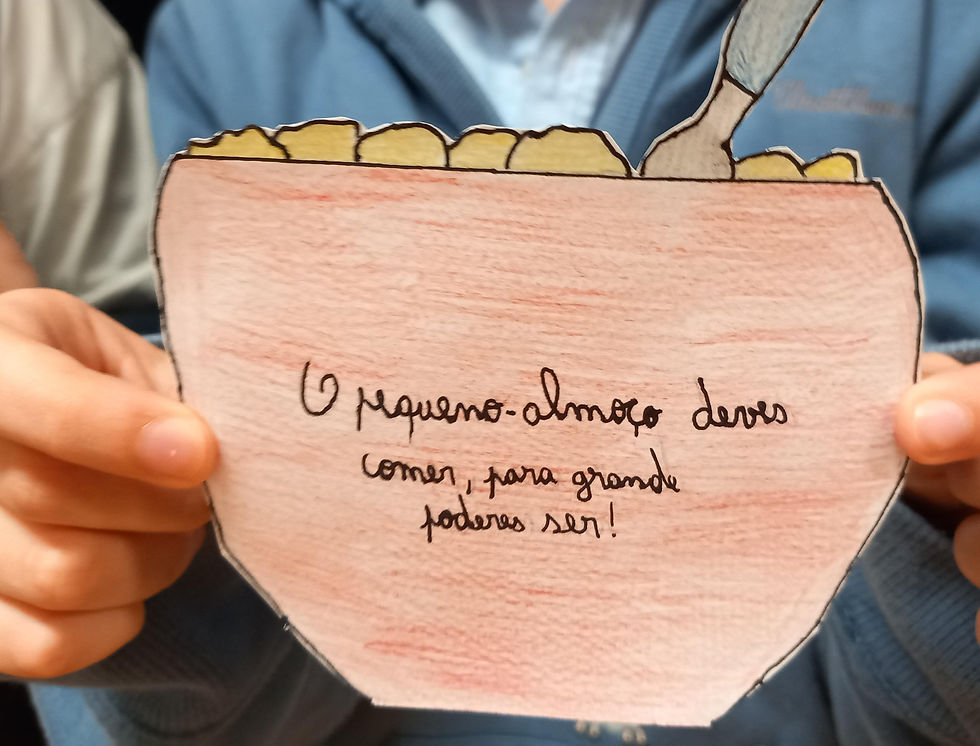 O pequeno-almoço deves
comer, para grande
poderes ser!